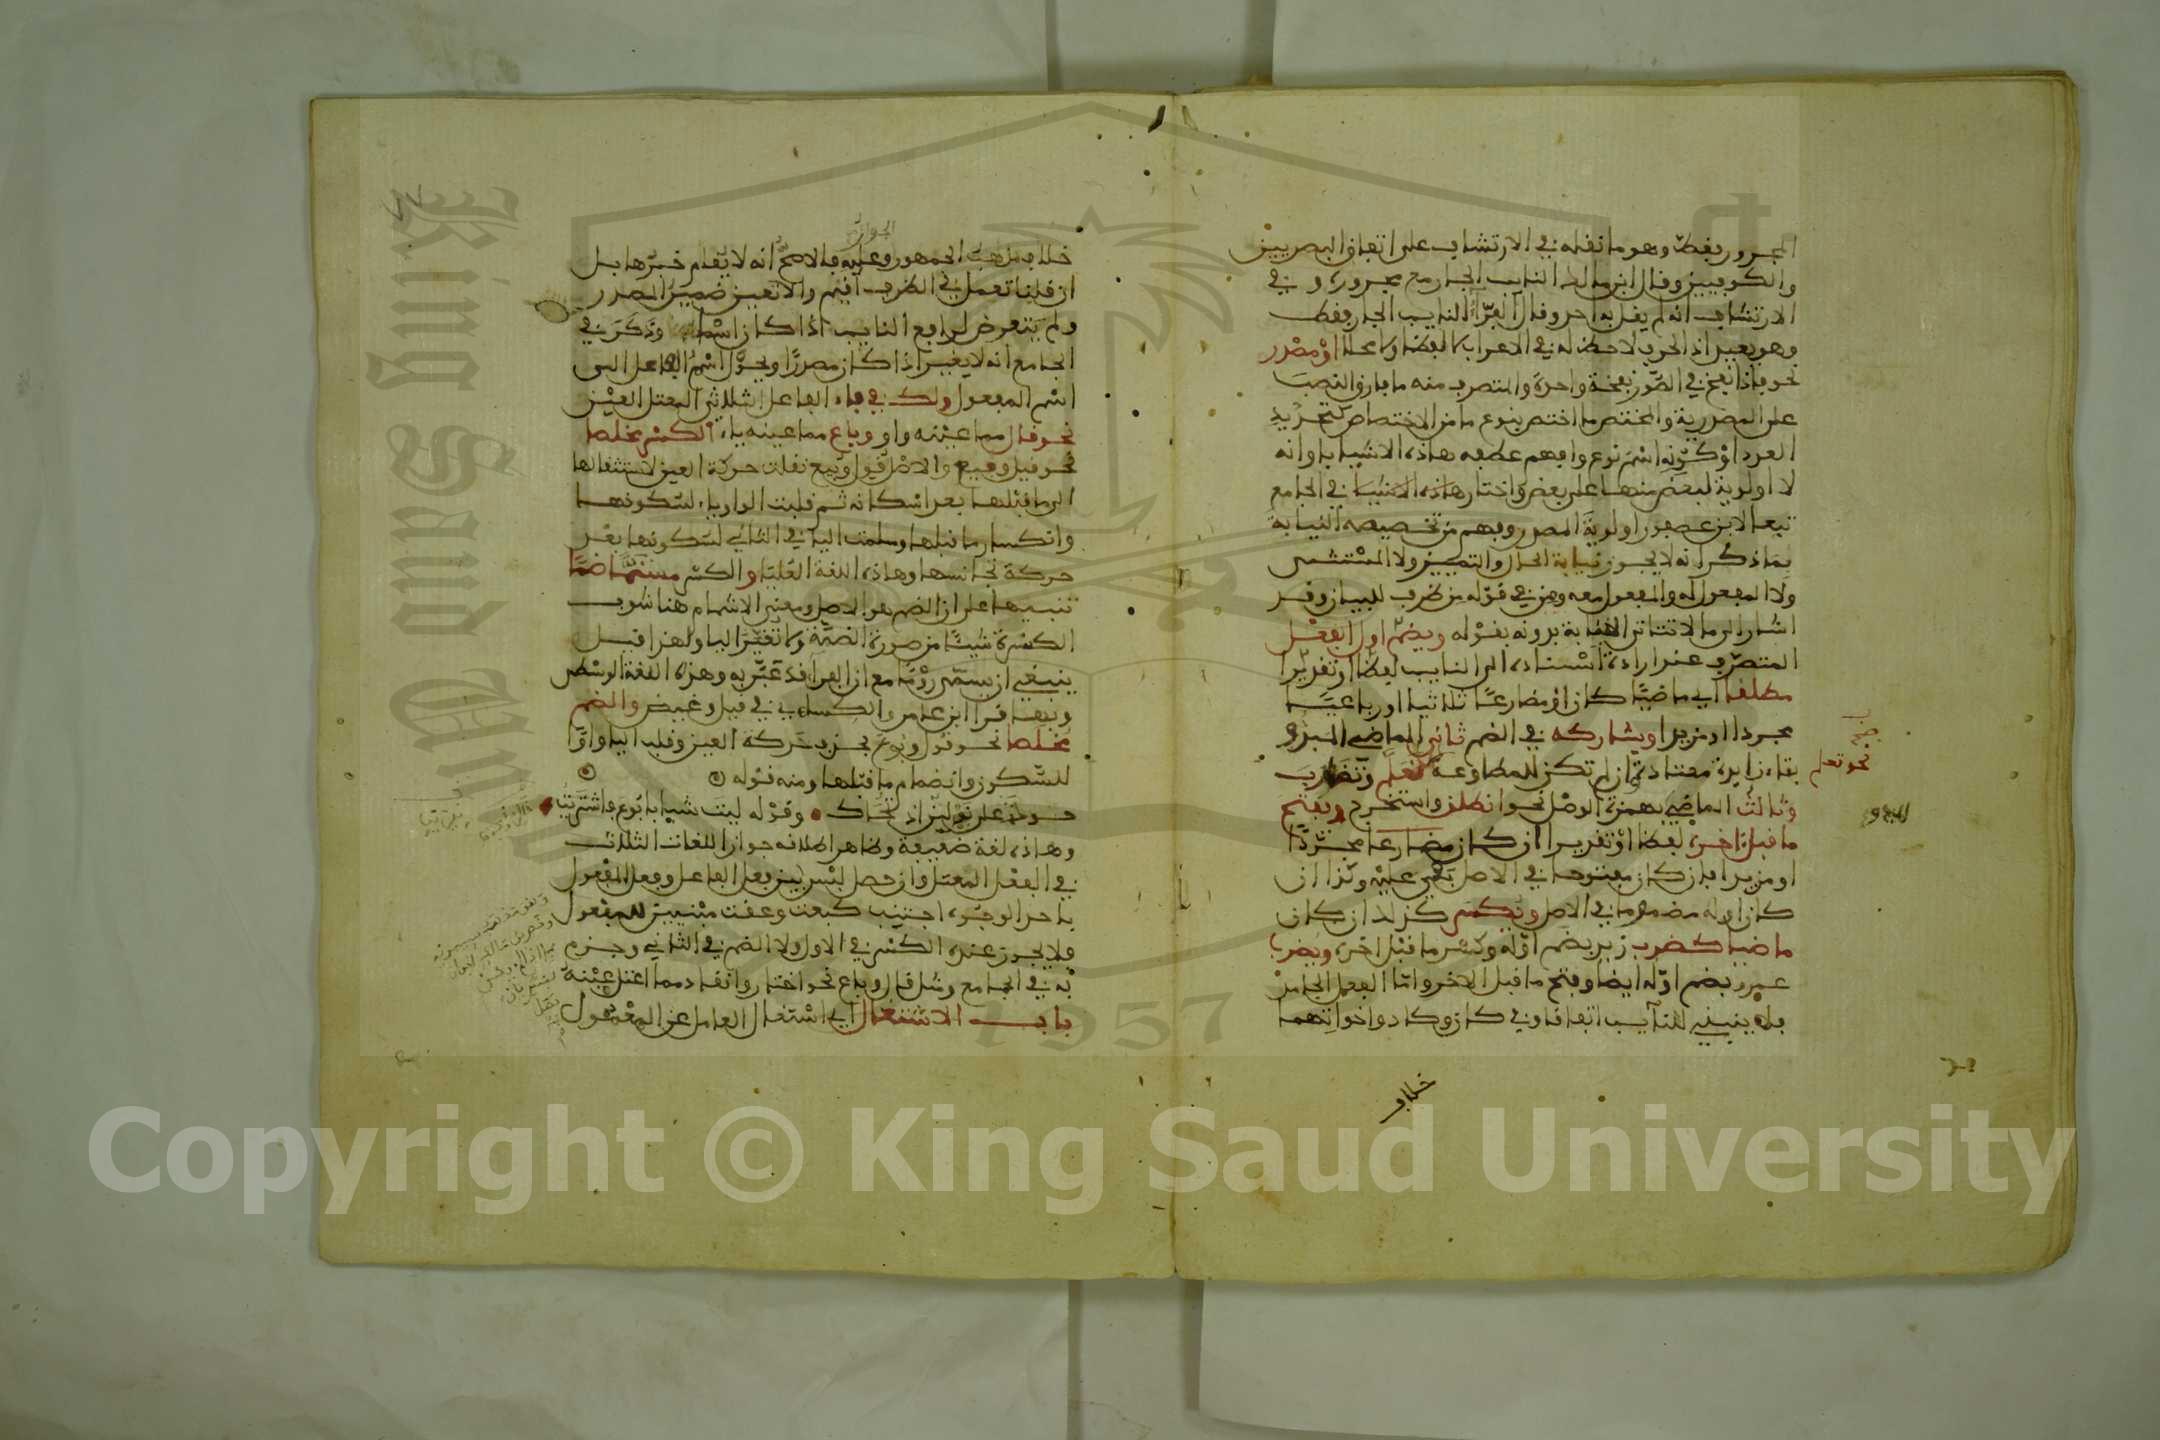 المجرور فقط وهو ما نقله في الارتشاف على اتفاق البصريين
والكوفيين وقال ابن مالك النايب الجار مع مجروره وفي
الارتشاف انه لم يقل به احد وقال الفرّاء النايب الجار فقط
وهو بعيد اذ الحرف لا حظ له في الاعراب لا لفظا ولا محلا او مصدر
نحو فاذا نفخ في الصّور نفخة واحدة والمتصرف منه ما فارق النصب
على المصدرية والمختص ما اختص بنوع ما من الاختصاص كتحديد
العدد او كونه اسم نوع وافهم عطفه هاذه الاشيا باو انه
لا اولوية لبعض منها على بعض واختار هاذه الاشيا في الجامع
تبعا لابن عصفور اولوية المصدر وفهم من تخصيصه النيابة
بما ذكر انه لا يجوز نيابة الحال والتمييز ولا المستثنى
ولا المفعول له والمفعول معه ومن في قوله من ظرف للبيان وقد
اشار الى ما لا تتاتى النيابة بدونه بقوله ويضمّ اول الفعل
المتصرّف عند ارادة اسناده الى النايب لفظا او تقديرا
مطلقا اي ماضيا كان او مضارعا ثلاثيا او رباعيا
مجردا او مزيدا ويشاركه في الضم ثاني الماضي المبدو
بتاء زايدة معتادة ان لم تكن للمطاوعة كتعلّم وتضارب
وثالث الماضي بهمزة الوصل نحو انطلق واستخرج ويفتح
ما قبل اخره لفظا او تقديرا ان كان مضارعا مجردا
او مزيدا فان كان مفتوحا في الاصل بقي عليه وكذا ان
كان اوله مضموما في الاصل ويكسر كذلك ان كان
ماضيا كضرب زيد بضم اوّله وكسر ما قبل اخره ويضرب
عمرو بضم اوّله ايضا وفتح ما قبل الاخر وامّا الفعل الجامد
فلا يبنى للنايب اتفاقا وفي كان وكاد واخواتهما
ضم
نحو تعلم
المبدو
خلاف
الجواز
خلاف مذهب الجمهور وعليه فالاصح انه لا يقام خبرها بل
ان قلنا تعمل في الظرف اقيم والا تعين ضمير المصدر
ولم يتعرض لرافع النايب اذا كان اسما وذكر في
الجامع انه لا يغير اذا كان مصدرا ويحوّل اسم الفاعل الى
اسم المفعول ولك في فاء الفاعل الثلاثي المعتل العين
نحو قال مما عينه واو وباع مما عينه ياء الكسر مخلصا
نحو قيل وبيع والاصل قول وبيع نقلت حركة العين لاستثقالها
الى ما قبلها بعد اسكانه ثم قلبت الواو ياء لسكونها
وانكسار ما قبلها وسلمت اليا في الثاني لسكونها بعد
حركة تجانسها وهاذه اللغة العليا والكسر مشما ضمّا
تنبيها على ان الضم هو الاصل ومعنى الاشمام هنا شوب
الكسرة شيئا من صورة الضمّة ولا تغيّر اليا ولهذا قيل
ينبغي ان يسمّى روما مع ان القرا قد عبّر به وهذه اللغة الوسطى
وبها قرا ابن عامر والكساءي في قيل وغيض والضم
مخلصا نحو قول وبوع بحذف حركة العين وقلب اليا واوا
للسّكون وانضمام ما قبلها ومنه قوله
حوكت على نولين اذ تحاك وقوله ليت شبابا بوع فاشتريت
وهاذه لغة ضعيفة وظاهر اطلاقه جواز اللغات الثلاث
في الفعل المعتل وان حصل لبس بين فعل الفاعل وفعل المفعول
باحد الوجوه اجتنب كبعت وعقت مبنيين للمفعول
فلا يجوز عنده الكسر في الاول ولا الضم في الثاني وجزم
به في الجامع ومثل قال وباع نحو اختار وانقاد مما اعتل عينه
باب الاشتغال اي اشتغال العامل عن المعمول